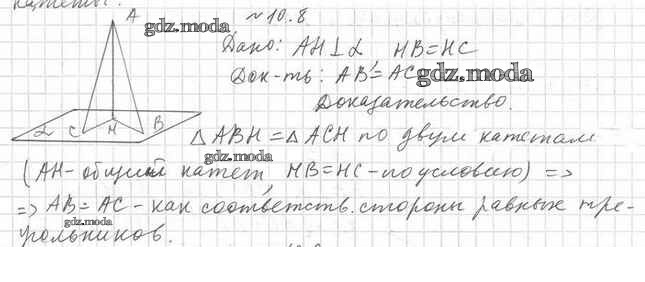 катеты.
A
№ 10.8
gdz.moda
Дано: AH⊥α HB=HC
Док-ть: AB=AC
gdz.moda
Доказательство.
α C H B
△ABH = △ACH по двум катетам
gdz.moda
(AH - общий катет, HB=HC - по условию) =>
=> AB=AC - как соответств. стороны равных тре-
gdz.moda
угольников.